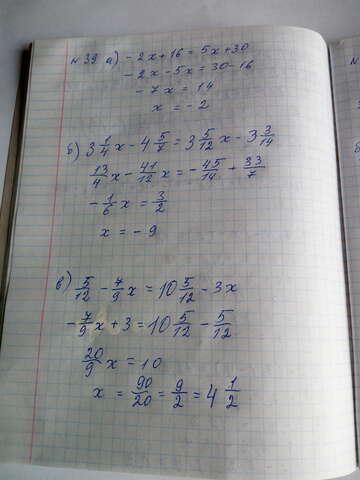 № 39 а) - 2x + 16 = 5x + 30
- 2x - 5x = 30 - 16
- 7x = 14
x = - 2
б) 3 1/4 x - 4 5/7 = 3 5/12 x - 3 3/14
13/4 x - 41/12 x = - 45/14 + 33/7
- 1/6 x = 3/2
x = - 9
в) 5/12 - 7/9 x = 10 5/12 - 3x
- 7/9 x + 3 = 10 5/12 - 5/12
20/9 x = 10
x = 90/20 = 9/2 = 4 1/2